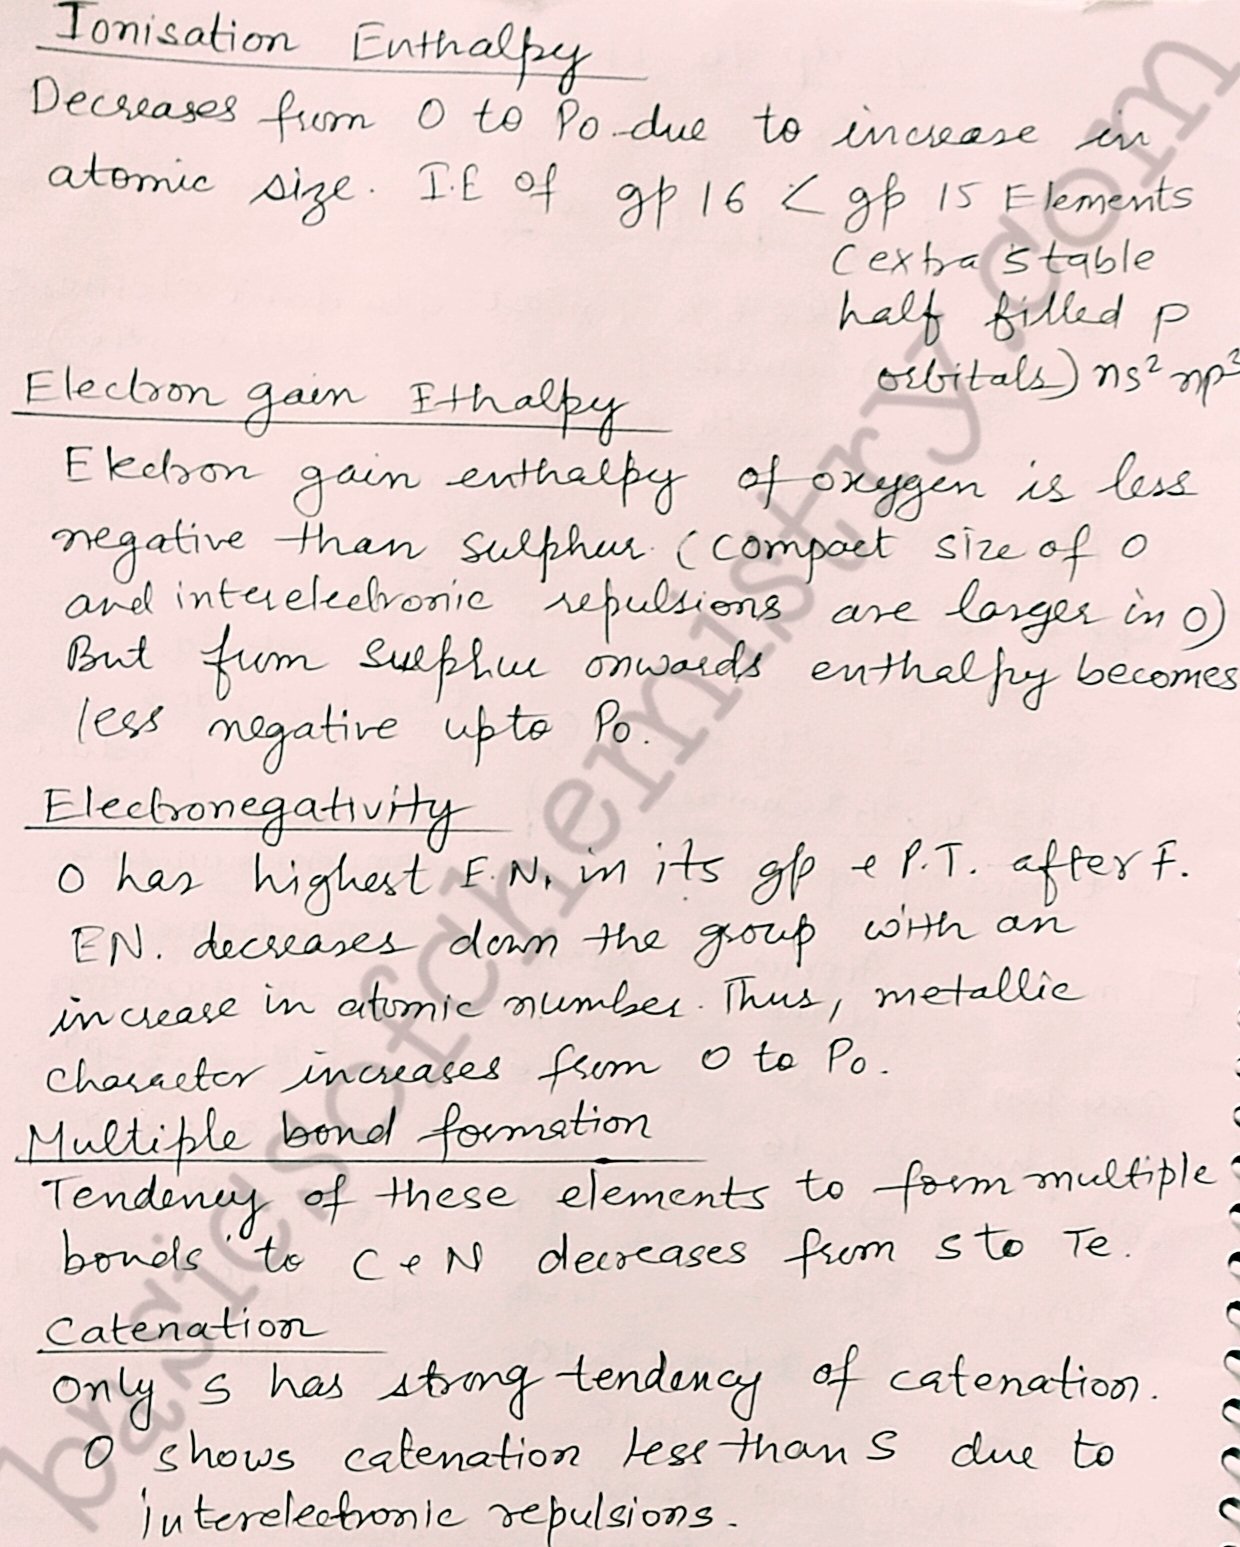 Ionisation Enthalpy
Decreases from O to Po due to increase in
atomic size. I.E of gp 16 < gp 15 Elements
(extra stable
half filled p
orbitals) ns² np³
Electron gain Ethalpy
Electron gain enthalpy of oxygen is less
negative than sulphur. (compact size of O
and interelectronic repulsions are larger in O)
But from Sulphur onwards enthalpy becomes
less negative upto Po.
Electronegativity
O has highest E.N. in its gp & P.T. after F.
EN. decreases down the group with an
increase in atomic number. Thus, metallic
character increases from O to Po.
Multiple bond formation
Tendency of these elements to form multiple
bonds to C & N decreases from S to Te.
Catenation
Only S has strong tendency of catenation.
O shows catenation less than S due to
interelectronic repulsions.
basicsofchemistry.com